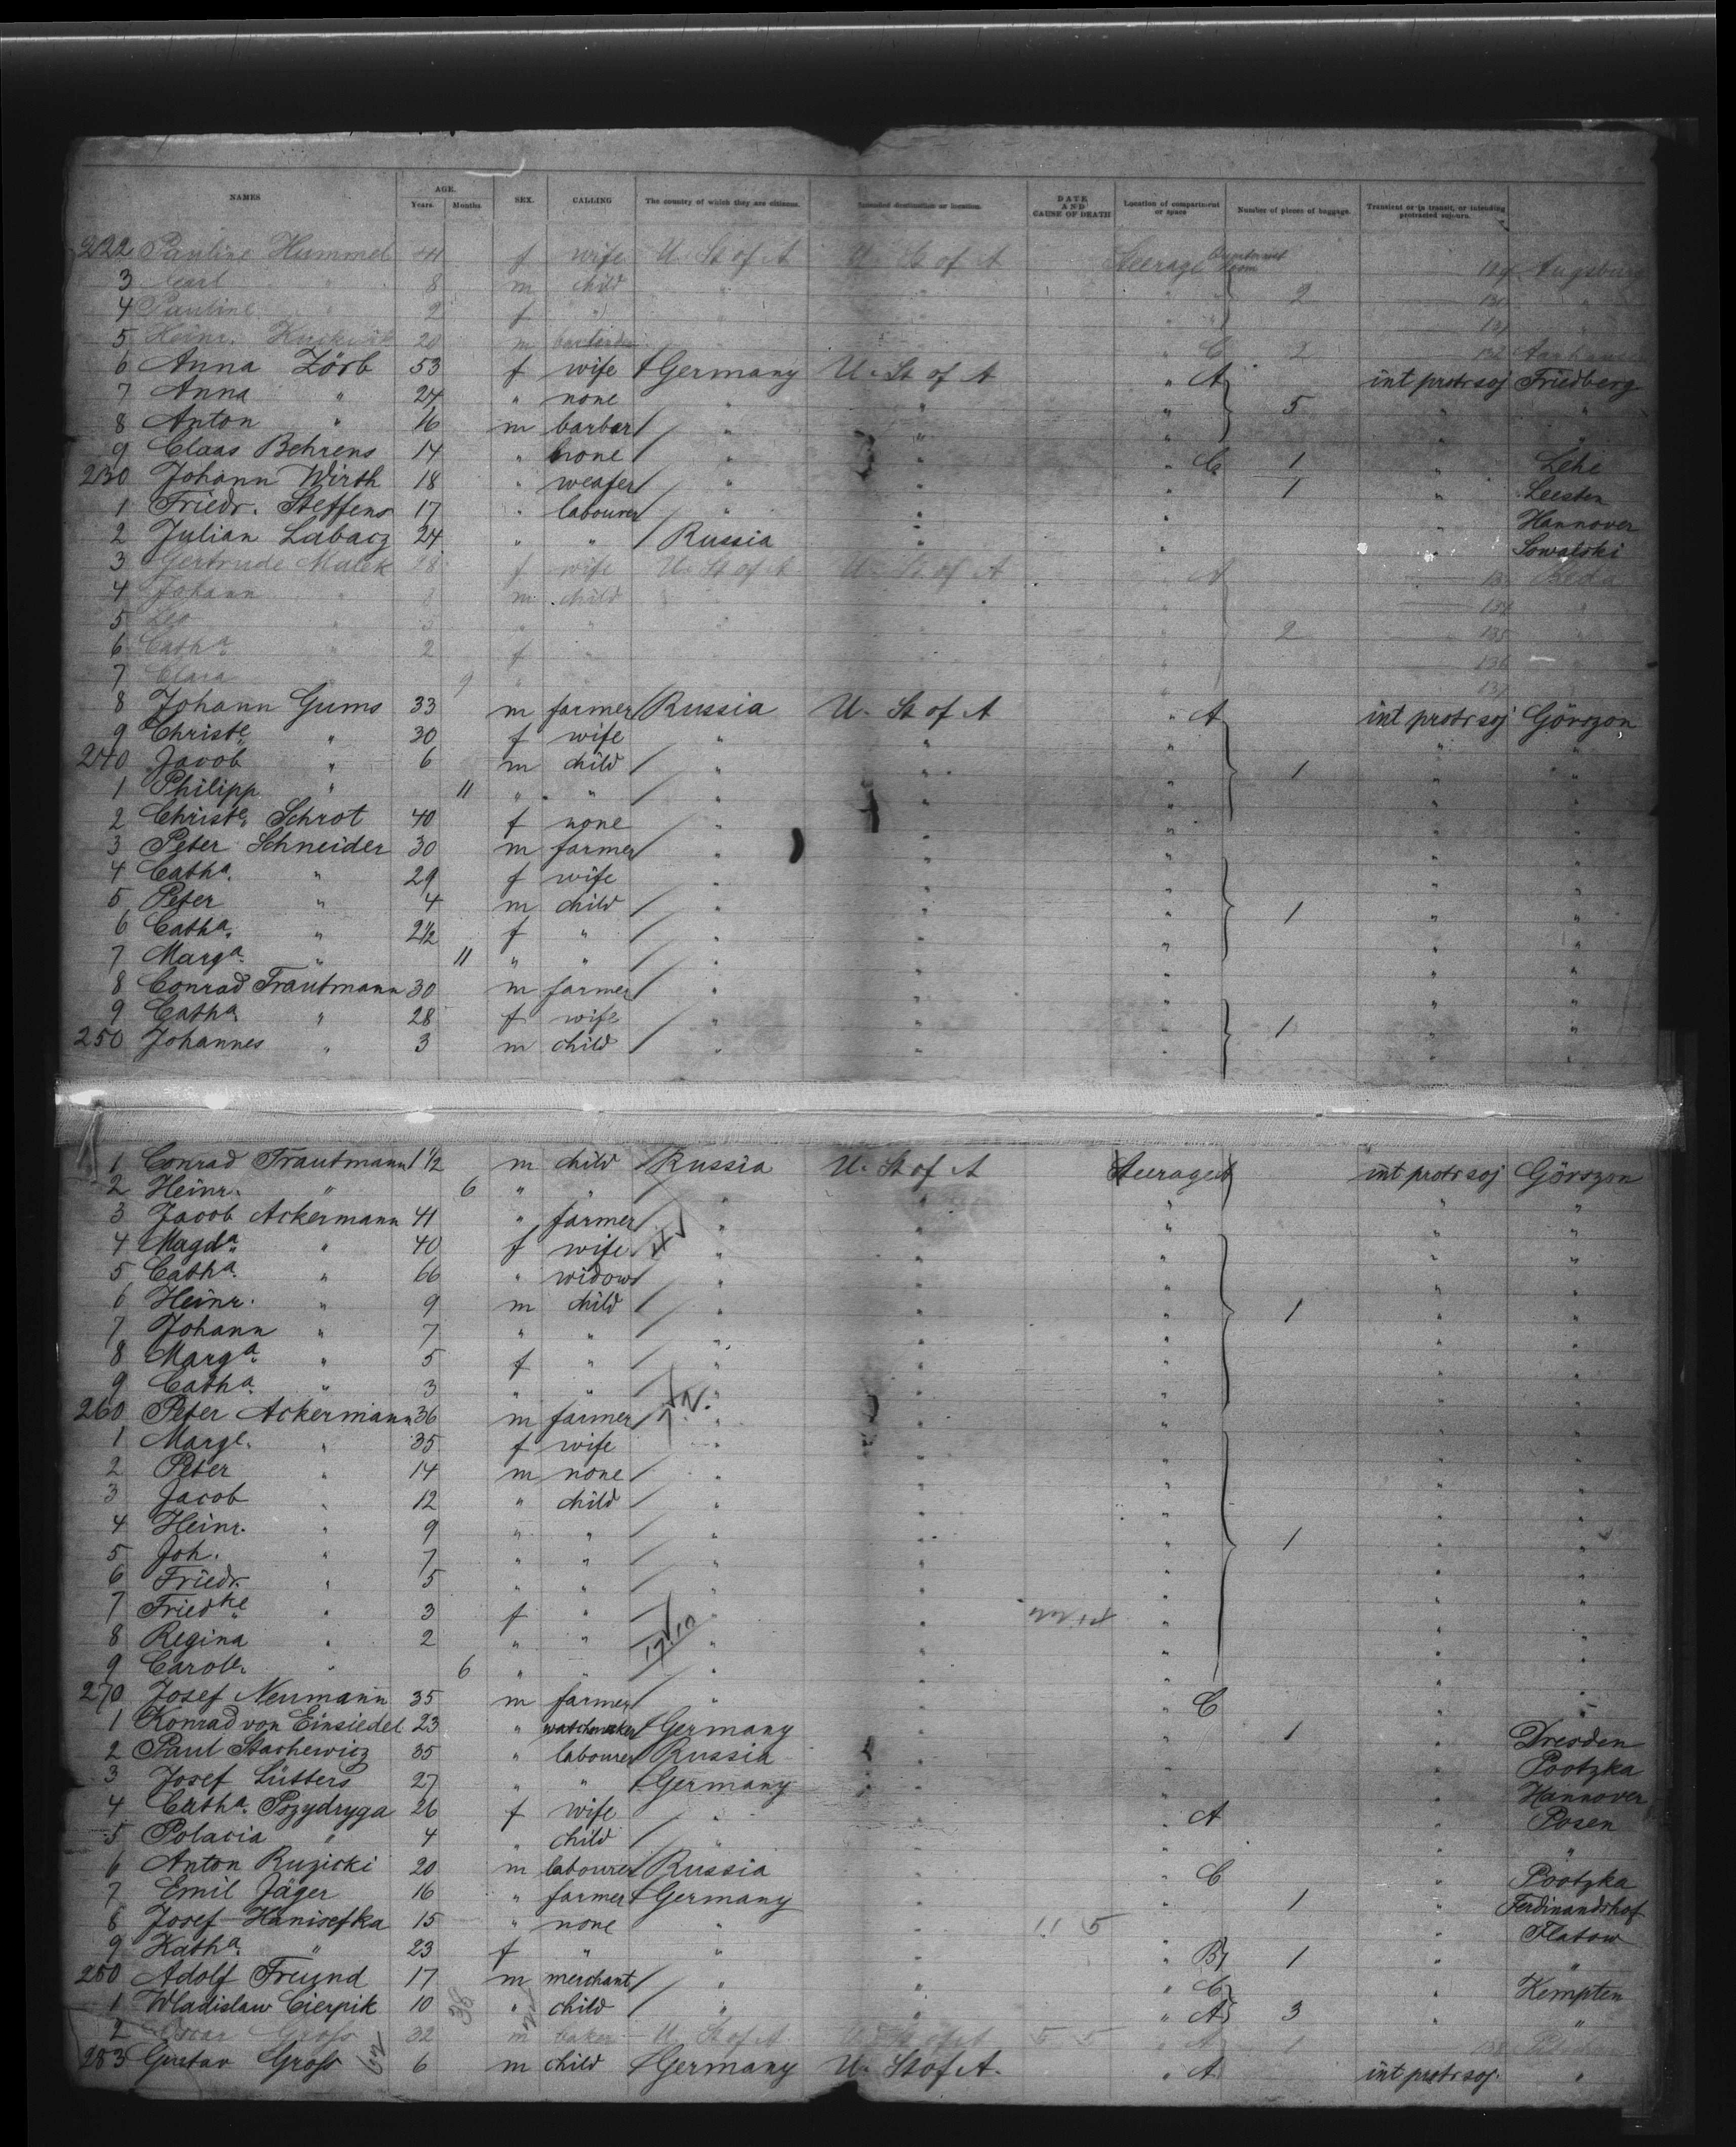 NAMES AGE. Years. Months SEX. CALLING The country of which they are citizens. Intended destination or location. DATE AND CAUSE OF DEATH Location of compartment or space Number of pieces of baggage. Transient or in transit, or intending protracted sojourn.
222 Pauline Hummel f wife U. St of A U. St of A Steerage 129 Augsburg
3 Carl " 8 m child " " " 2 130 "
4 Pauline " 2 f " " " " 131 "
5 Heinr. 20 m " " " C 2 132
6 Anna Zörb 53 f wife Germany U. St of A " A int protr soj Friedberg
7 Anna " 24 " none " " " 5 " "
8 Anton " 16 m barbar " " " " "
9 Claas Behrens 14 " none " " " C 1 " Lehe
230 Johann Wirth 18 " weafer " " " 1 " Leesten
1 Friedr. Steffens 17 " labourer " " " " Hannover
2 Julian Labacz 24 " " Russia " " " Sowalski
3 Gertrude Malek 28 f wife U. St of A U. St of A " A 133
4 Johann " 8 m child " " " 134 "
5 Leo " 3 " " " " " 2 135 "
6 Catha. " 2 f " " " " 136 "
7 Clara " 9 " " " " " 137 "
8 Johann Gums 33 m farmer Russia U. St of A " A int protr soj Görszon
9 Christe. " 30 f wife " " " " "
240 Jacob " 6 m child " " " 1 " "
1 Philipp " 11 " " " " " " "
2 Christe. Schrot 40 f none " " " " "
3 Peter Schneider 30 m farmer " " " " "
4 Catha. " 29 f wife " " " " "
5 Peter " 4 m child " " " 1 " "
6 Catha. " 2 1/2 f " " " " " "
7 Marga. " 11 " " " " " " "
8 Conrad Trautmann 30 m farmer " " " " "
9 Catha. " 28 f wife " " " 1 " "
250 Johannes " 3 m child " " " " "
1 Conrad Trautmann 1 1/2 m child Russia U. St of A Steerage A int protr soj Görszon
2 Heinr. " 6 " " " " " " "
3 Jacob Ackermann 41 " farmer " " " " "
4 Magda. " 40 f wife " " " " "
5 Catha. " 66 " widow " " " " "
6 Heinr. " 9 m child " " " 1 " "
7 Johann " 7 " " " " " " "
8 Marga. " 5 f " " " " " "
9 Catha. " 3 " " " " " " "
260 Peter Ackermann 36 m farmer " " " " "
1 Marge. " 35 f wife " " " " "
2 Peter " 14 m none " " " " "
3 Jacob " 12 " child " " " " "
4 Heinr. " 9 " " " " " 1 " "
5 Joh. " 7 " " " " " " "
6 Friedr. " 5 " " " " " " "
7 Friedke. " 3 f " " " " " "
8 Regina " 2 " " " " " " "
9 Carole. " 6 " " " " " " "
270 Josef Neumann 35 m farmer " " " C " "
1 Konrad von Einsiedel 23 " watchmaker Germany " " 1 " Dresden
2 Paul Stachewicz 35 " labourer Russia " " " Pootzka
3 Josef Lütters 27 " " Germany " " " Hannover
4 Catha. Pozydryga 26 f wife " " " A " Posen
5 Polacia " 4 " child " " " " "
6 Anton Ruzicki 20 m labourer Russia " " C " Pootzka
7 Emil Jäger 16 " farmer Germany " " 1 " Ferdinandshof
8 Josef Hanisefka 15 " none " " 11 5 " " Flatow
9 Katha. " 23 f " " " " B 1 " "
280 Adolf Freund 17 m merchant " " " C " Kempten
1 Wladislaw Cierpik 10 " child " " " A 3 " "
2 Oscar Gross 32 m baker U. St of A U. St of A 5 5 " A 1 138
283 Gustav Gross 6 m child Germany U. St of A. " A int protr soj. "